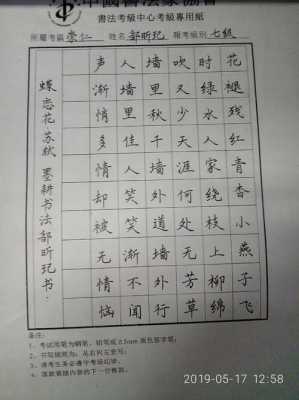 中國書法家協會
書法考級中心考級專用紙
所屬考區 崇仁 姓名 郜昕玘 報考級別 七級
花褪残红青杏小燕子飞
时绿水人家绕枝上柳绵
吹又少天涯何处无芳草
墙里秋千墙外道墙外行
人墙里佳人笑笑渐不闻
声渐悄多情却被无情恼
蝶恋花 苏轼 墨耕书法 郜昕玘书
备注:
1、考试用笔为钢笔、铅笔或0.5mm黑色签字笔;
2、书写顺序为:从右向左竖写;
3、请考生务必遵守考级纪律;
4、落款紧随内容的下一行书写。
2019-05-17 12:58